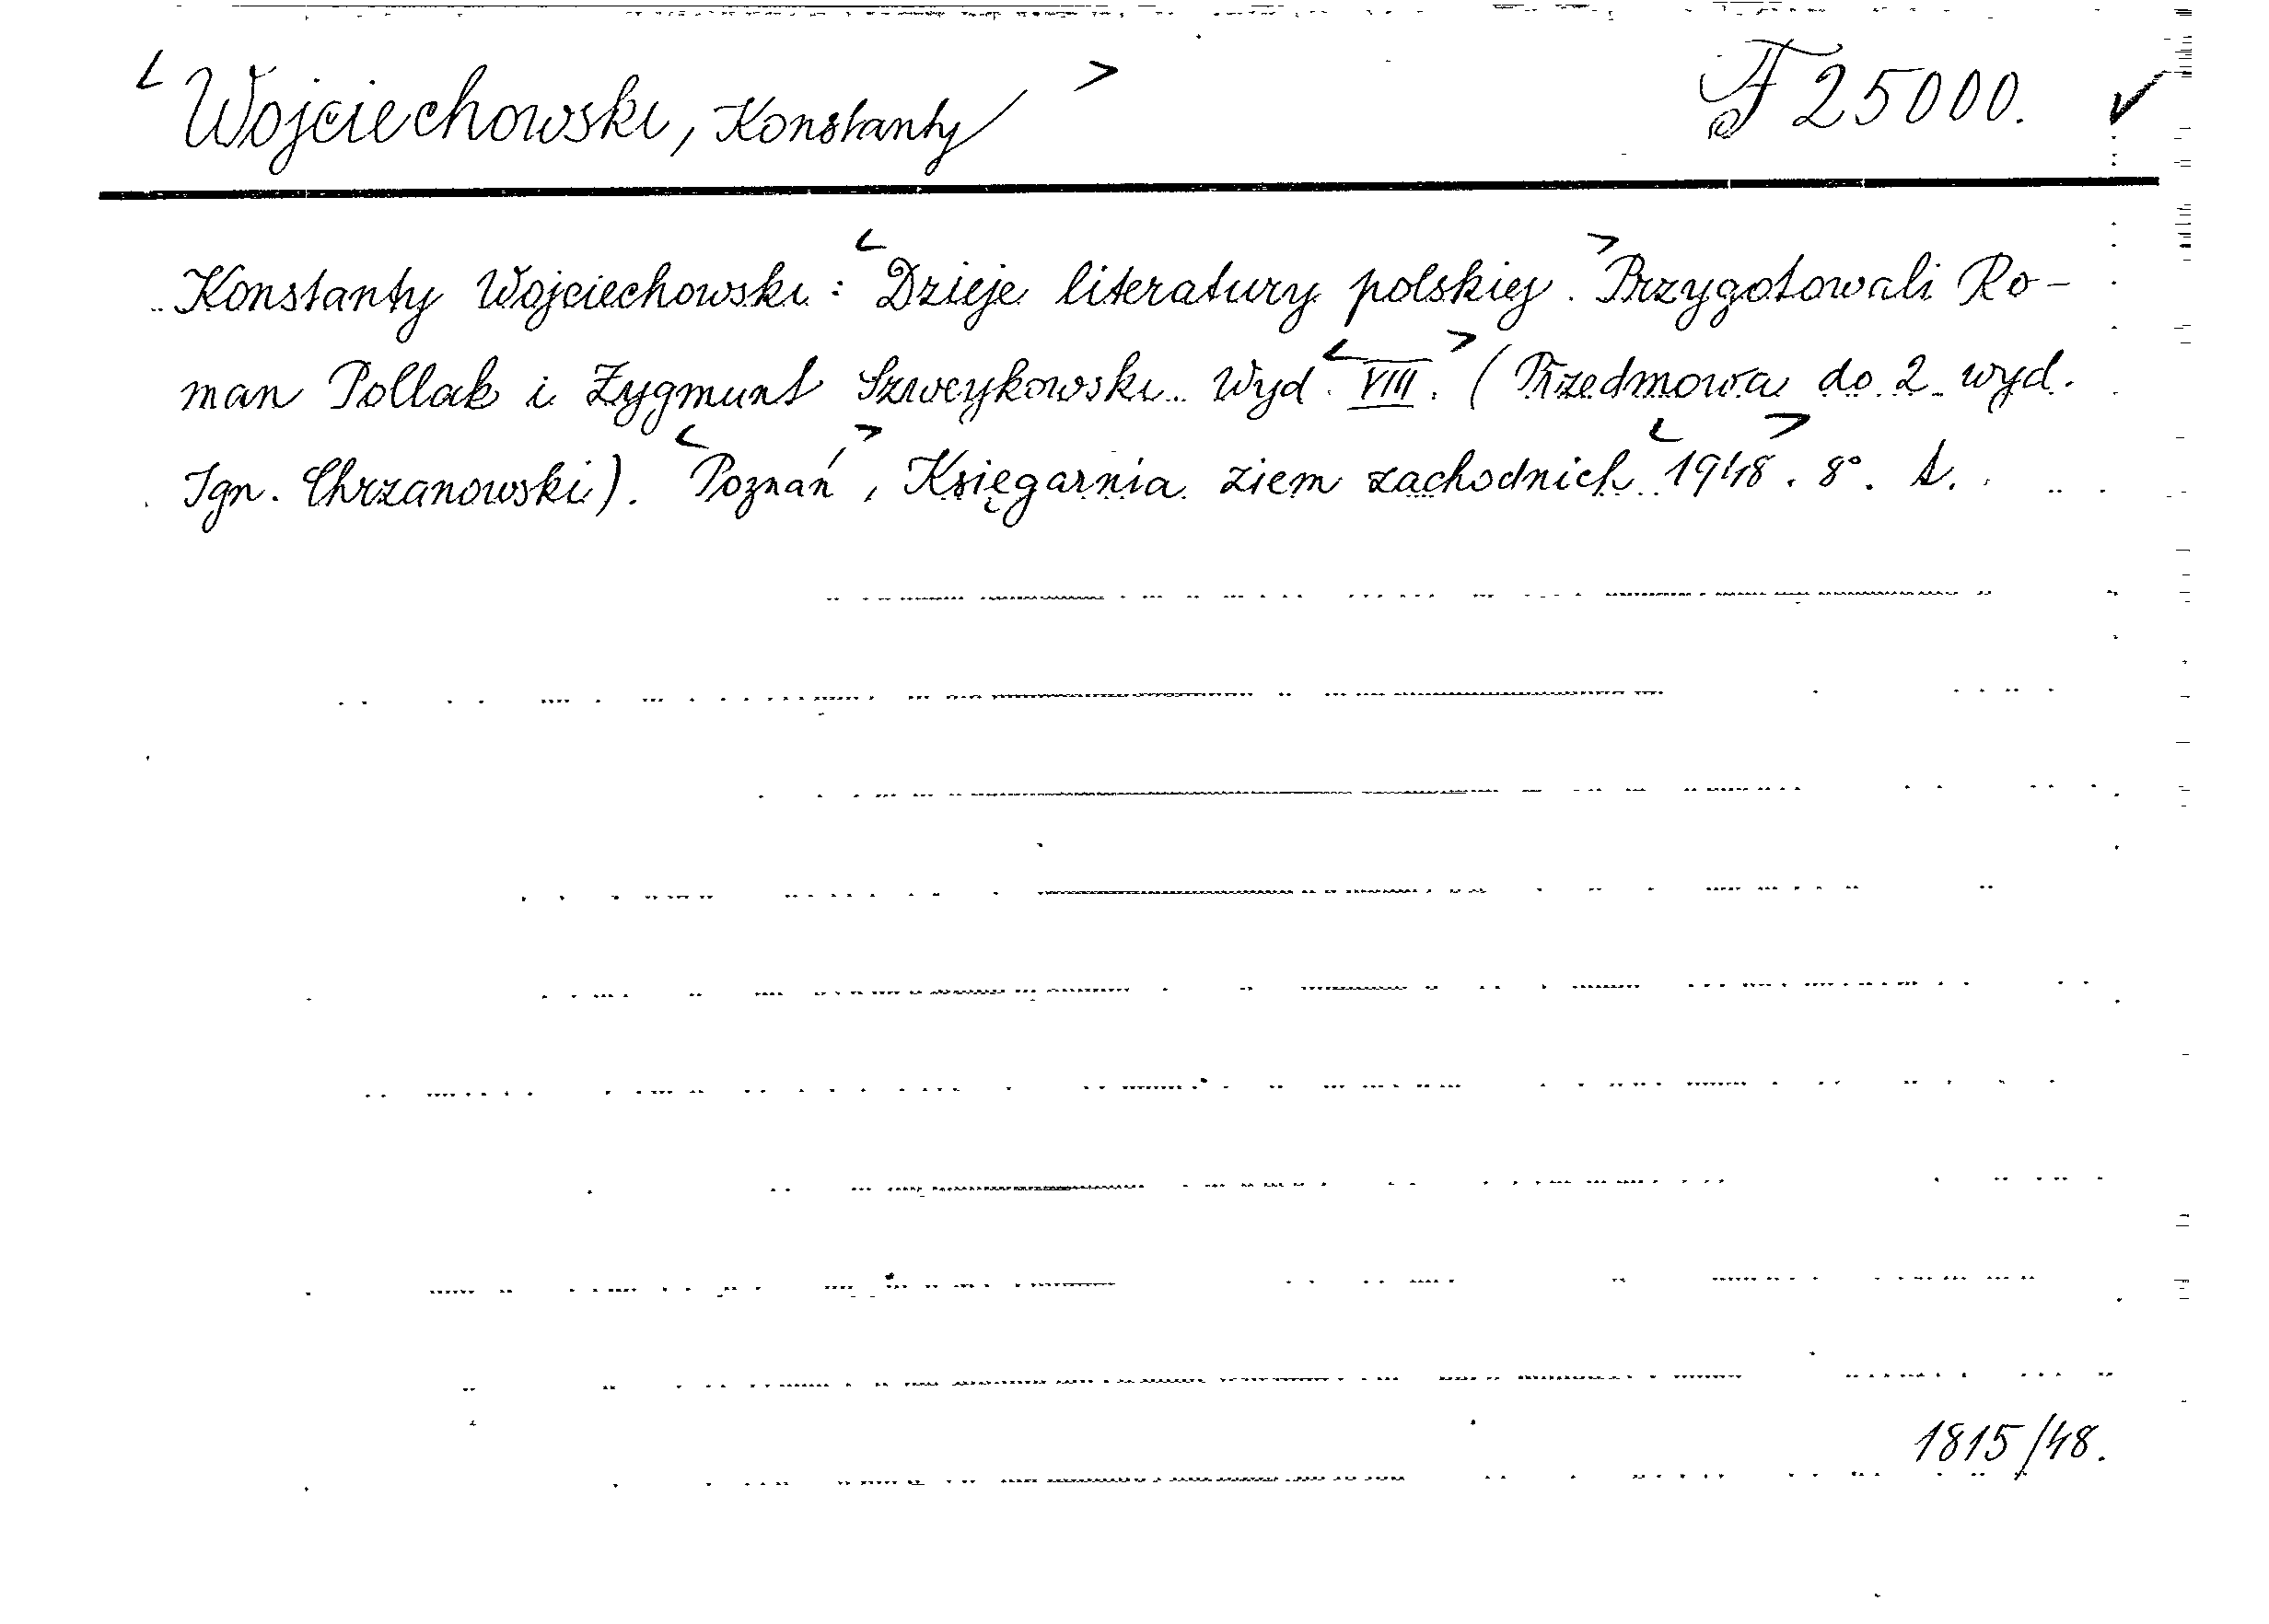 <Wojciechowski, Konstanty> F 25000. ✓
Konstanty Wojciechowski: <Dzieje literatury polskiej.> Przygotowali Ro-
man Pollak i Zygmunt Szweykowski. Wyd. <VIII.> (Przedmowa do 2 wyd.
Ign. Chrzanowski). <Poznań>, Księgarnia ziem zachodnich <1948>. 8°.
1815/48.